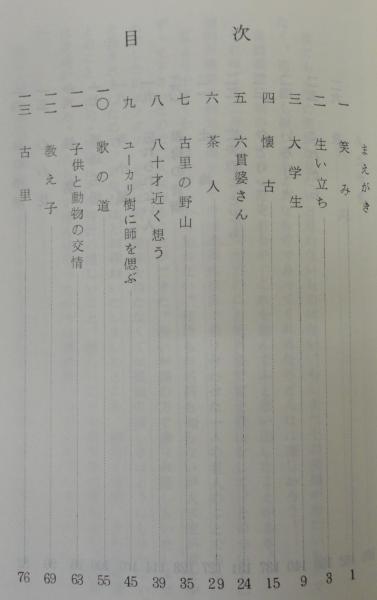 目次
まえがき
一 笑み 1
二 生い立ち 3
三 大学生 9
四 懐古 15
五 六貫婆さん 24
六 茶人 29
七 古里の野山 35
八 八十才近く想う 39
九 ユーカリ樹に師を偲ぶ 45
一〇 歌の道 55
一一 子供と動物の交情 63
一二 教え子 69
一三 古里 76